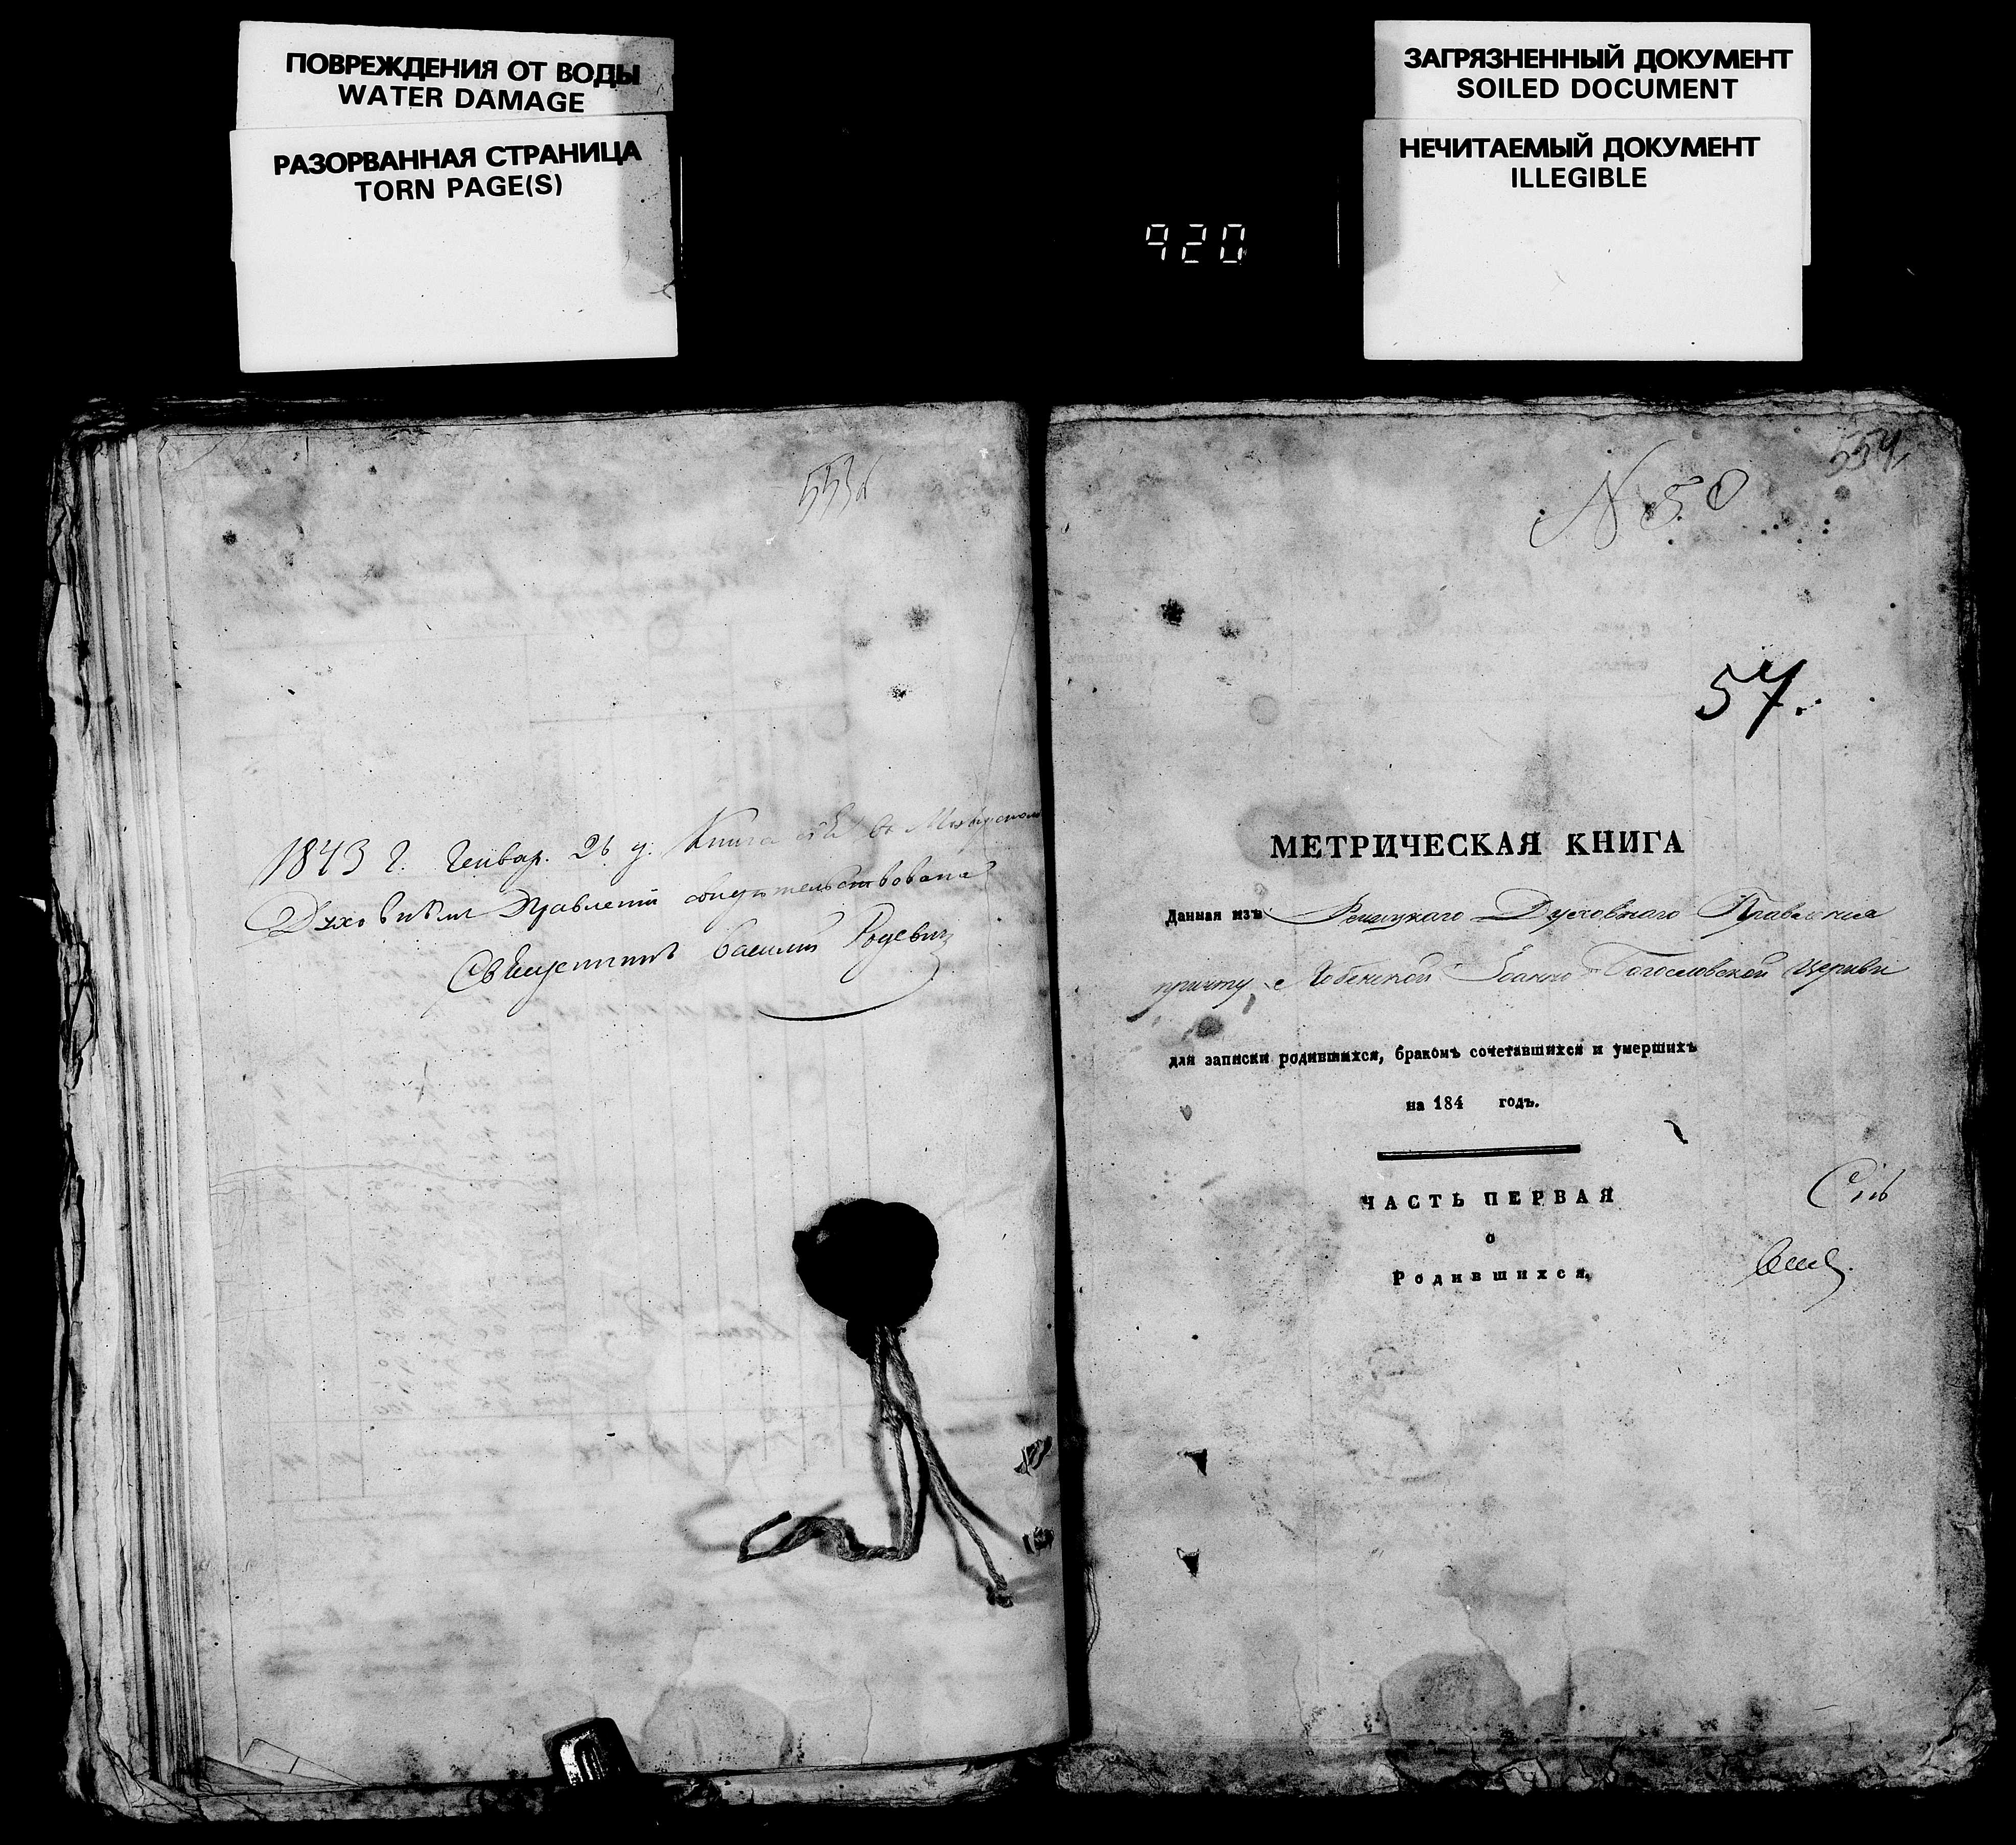 ПОВРЕЖДЕНИЯ ОТ ВОДЫ
WATER DAMAGE
РАЗОРВАННАЯ СТРАНИЦА
TORN PAGE(S)
920
ЗАГРЯЗНЕННЫЙ ДОКУМЕНТ
SOILED DOCUMENT
НЕЧИТАЕМЫЙ ДОКУМЕНТ
ILLEGIBLE
1843 г. Генвар. 26 д. Книга сія въ
Духовномъ Правленіи свидѣтельствована
Священникъ Василій
554
N 50
57.
МЕТРИЧЕСКАЯ КНИГА
Данная изъ Речицкаго Духовнаго Правленія
причту Іоанно-Богословской Церкви
для записки родившихся, бракомъ сочетавшихся и умершихъ
на 184 годъ.
ЧАСТЬ ПЕРВАЯ
о
Родившихся.